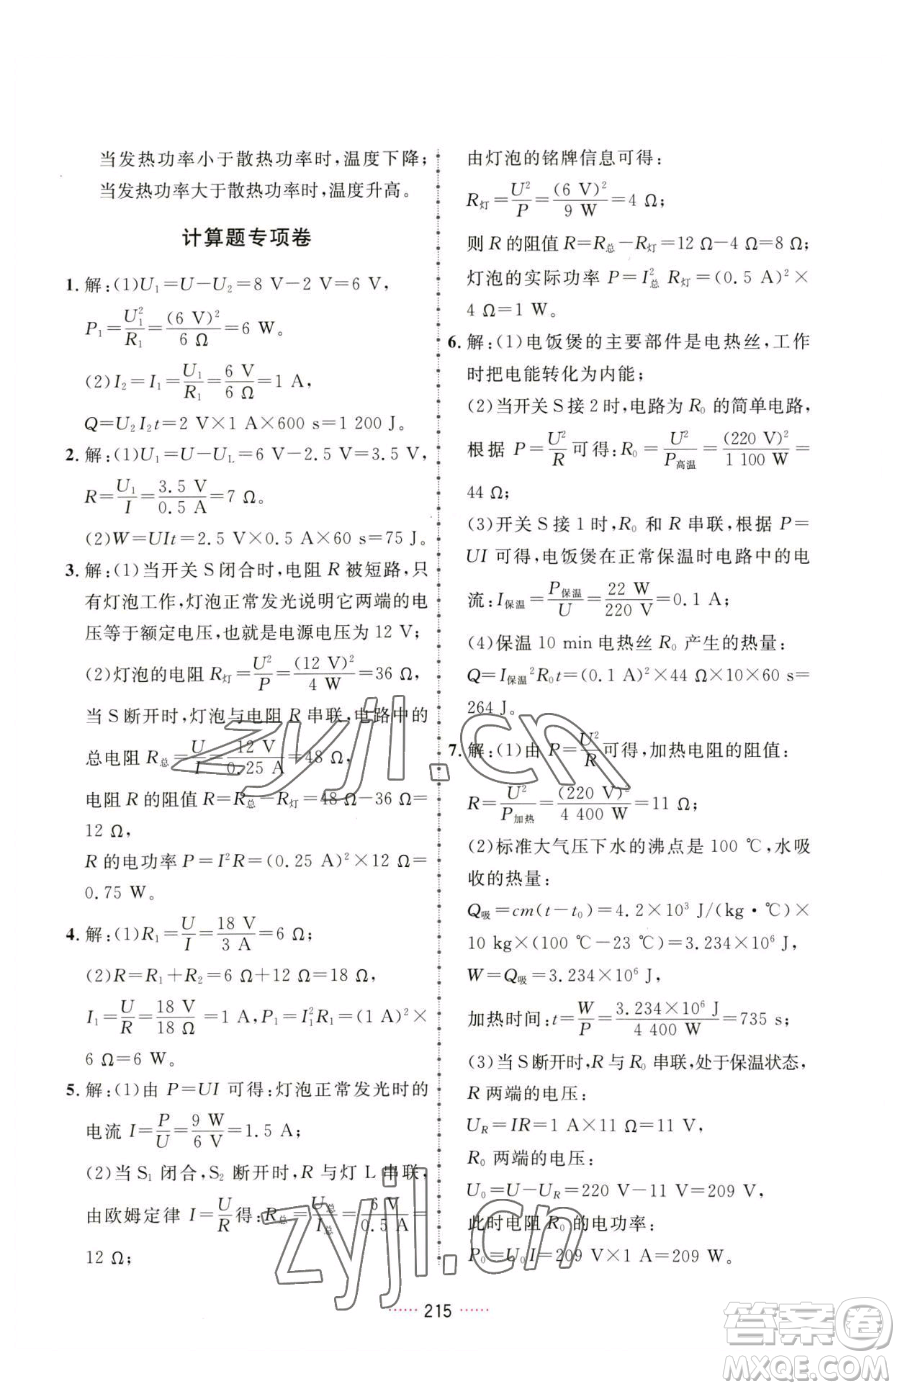 当发热功率小于散热功率时,温度下降;
当发热功率大于散热功率时,温度升高。
计算题专项卷
1. 解:(1)U₁=U−U₂=8 V−2 V=6 V,
P₁=U₁²/R₁=(6 V)²/6 Ω=6 W。
(2)I₂=I₁=U₁/R₁=6 V/6 Ω=1 A,
Q=U₂I₂t=2 V×1 A×600 s=1 200 J。
2. 解:(1)U₁=U−U_L=6 V−2.5 V=3.5 V,
R=U₁/I=3.5 V/0.5 A=7 Ω。
(2)W=UIt=2.5 V×0.5 A×60 s=75 J。
3. 解:(1)当开关 S 闭合时,电阻 R 被短路,只
有灯泡工作,灯泡正常发光说明它两端的电
压等于额定电压,也就是电源电压为 12 V;
(2)灯泡的电阻 R灯=U²/P=(12 V)²/4 W=36 Ω,
当 S 断开时,灯泡与电阻 R 串联,电路中的
总电阻 R总=U/I=12 V/0.25 A=48 Ω,
电阻 R 的阻值 R=R总−R灯=48 Ω−36 Ω=
12 Ω,
R 的电功率 P=I²R=(0.25 A)²×12 Ω=
0.75 W。
4. 解:(1)R₁=U/I=18 V/3 A=6 Ω;
(2)R=R₁+R₂=6 Ω+12 Ω=18 Ω,
I₁=U/R=18 V/18 Ω=1 A,P₁=I₁²R₁=(1 A)²×
6 Ω=6 W。
5. 解:(1)由 P=UI 可得:灯泡正常发光时的
电流 I=P/U=9 W/6 V=1.5 A;
(2)当 S₁ 闭合,S₂ 断开时,R 与灯 L 串联,
由欧姆定律 I=U/R得:R总=U总/I总=6 V/0.5 A=
12 Ω;
由灯泡的铭牌信息可得:
R灯=U²/P=(6 V)²/9 W=4 Ω;
则 R 的阻值 R=R总−R灯=12 Ω−4 Ω=8 Ω;
灯泡的实际功率 P=I总² R灯=(0.5 A)²×
4 Ω=1 W。
6. 解:(1)电饭煲的主要部件是电热丝,工作
时把电能转化为内能;
(2)当开关 S 接 2 时,电路为 R₀ 的简单电路,
根据 P=U²/R可得:R₀=U²/P高温=(220 V)²/1 100 W=
44 Ω;
(3)开关 S 接 1 时,R₀ 和 R 串联,根据 P=
UI 可得,电饭煲在正常保温时电路中的电
流:I保温=P保温/U=22 W/220 V=0.1 A;
(4)保温 10 min 电热丝 R₀ 产生的热量:
Q=I保温²R₀t=(0.1 A)²×44 Ω×10×60 s=
264 J。
7. 解:(1)由 P=U²/R可得,加热电阻的阻值:
R=U²/P加热=(220 V)²/4 400 W=11 Ω;
(2)标准大气压下水的沸点是 100 ℃,水吸
收的热量:
Q吸=cm(t−t₀)=4.2×10³ J/(kg·℃)×
10 kg×(100 ℃−23 ℃)=3.234×10⁶ J,
W=Q吸=3.234×10⁶ J,
加热时间:t=W/P=3.234×10⁶ J/4 400 W=735 s;
(3)当 S 断开时,R 与 R₀ 串联,处于保温状态,
R 两端的电压:
U_R=IR=1 A×11 Ω=11 V,
R₀ 两端的电压:
U₀=U−U_R=220 V−11 V=209 V,
此时电阻 R₀ 的电功率:
P₀=U₀I=209 V×1 A=209 W。
zyjl.cn
zyjl.cn
215
答案卷
MXQE.COM